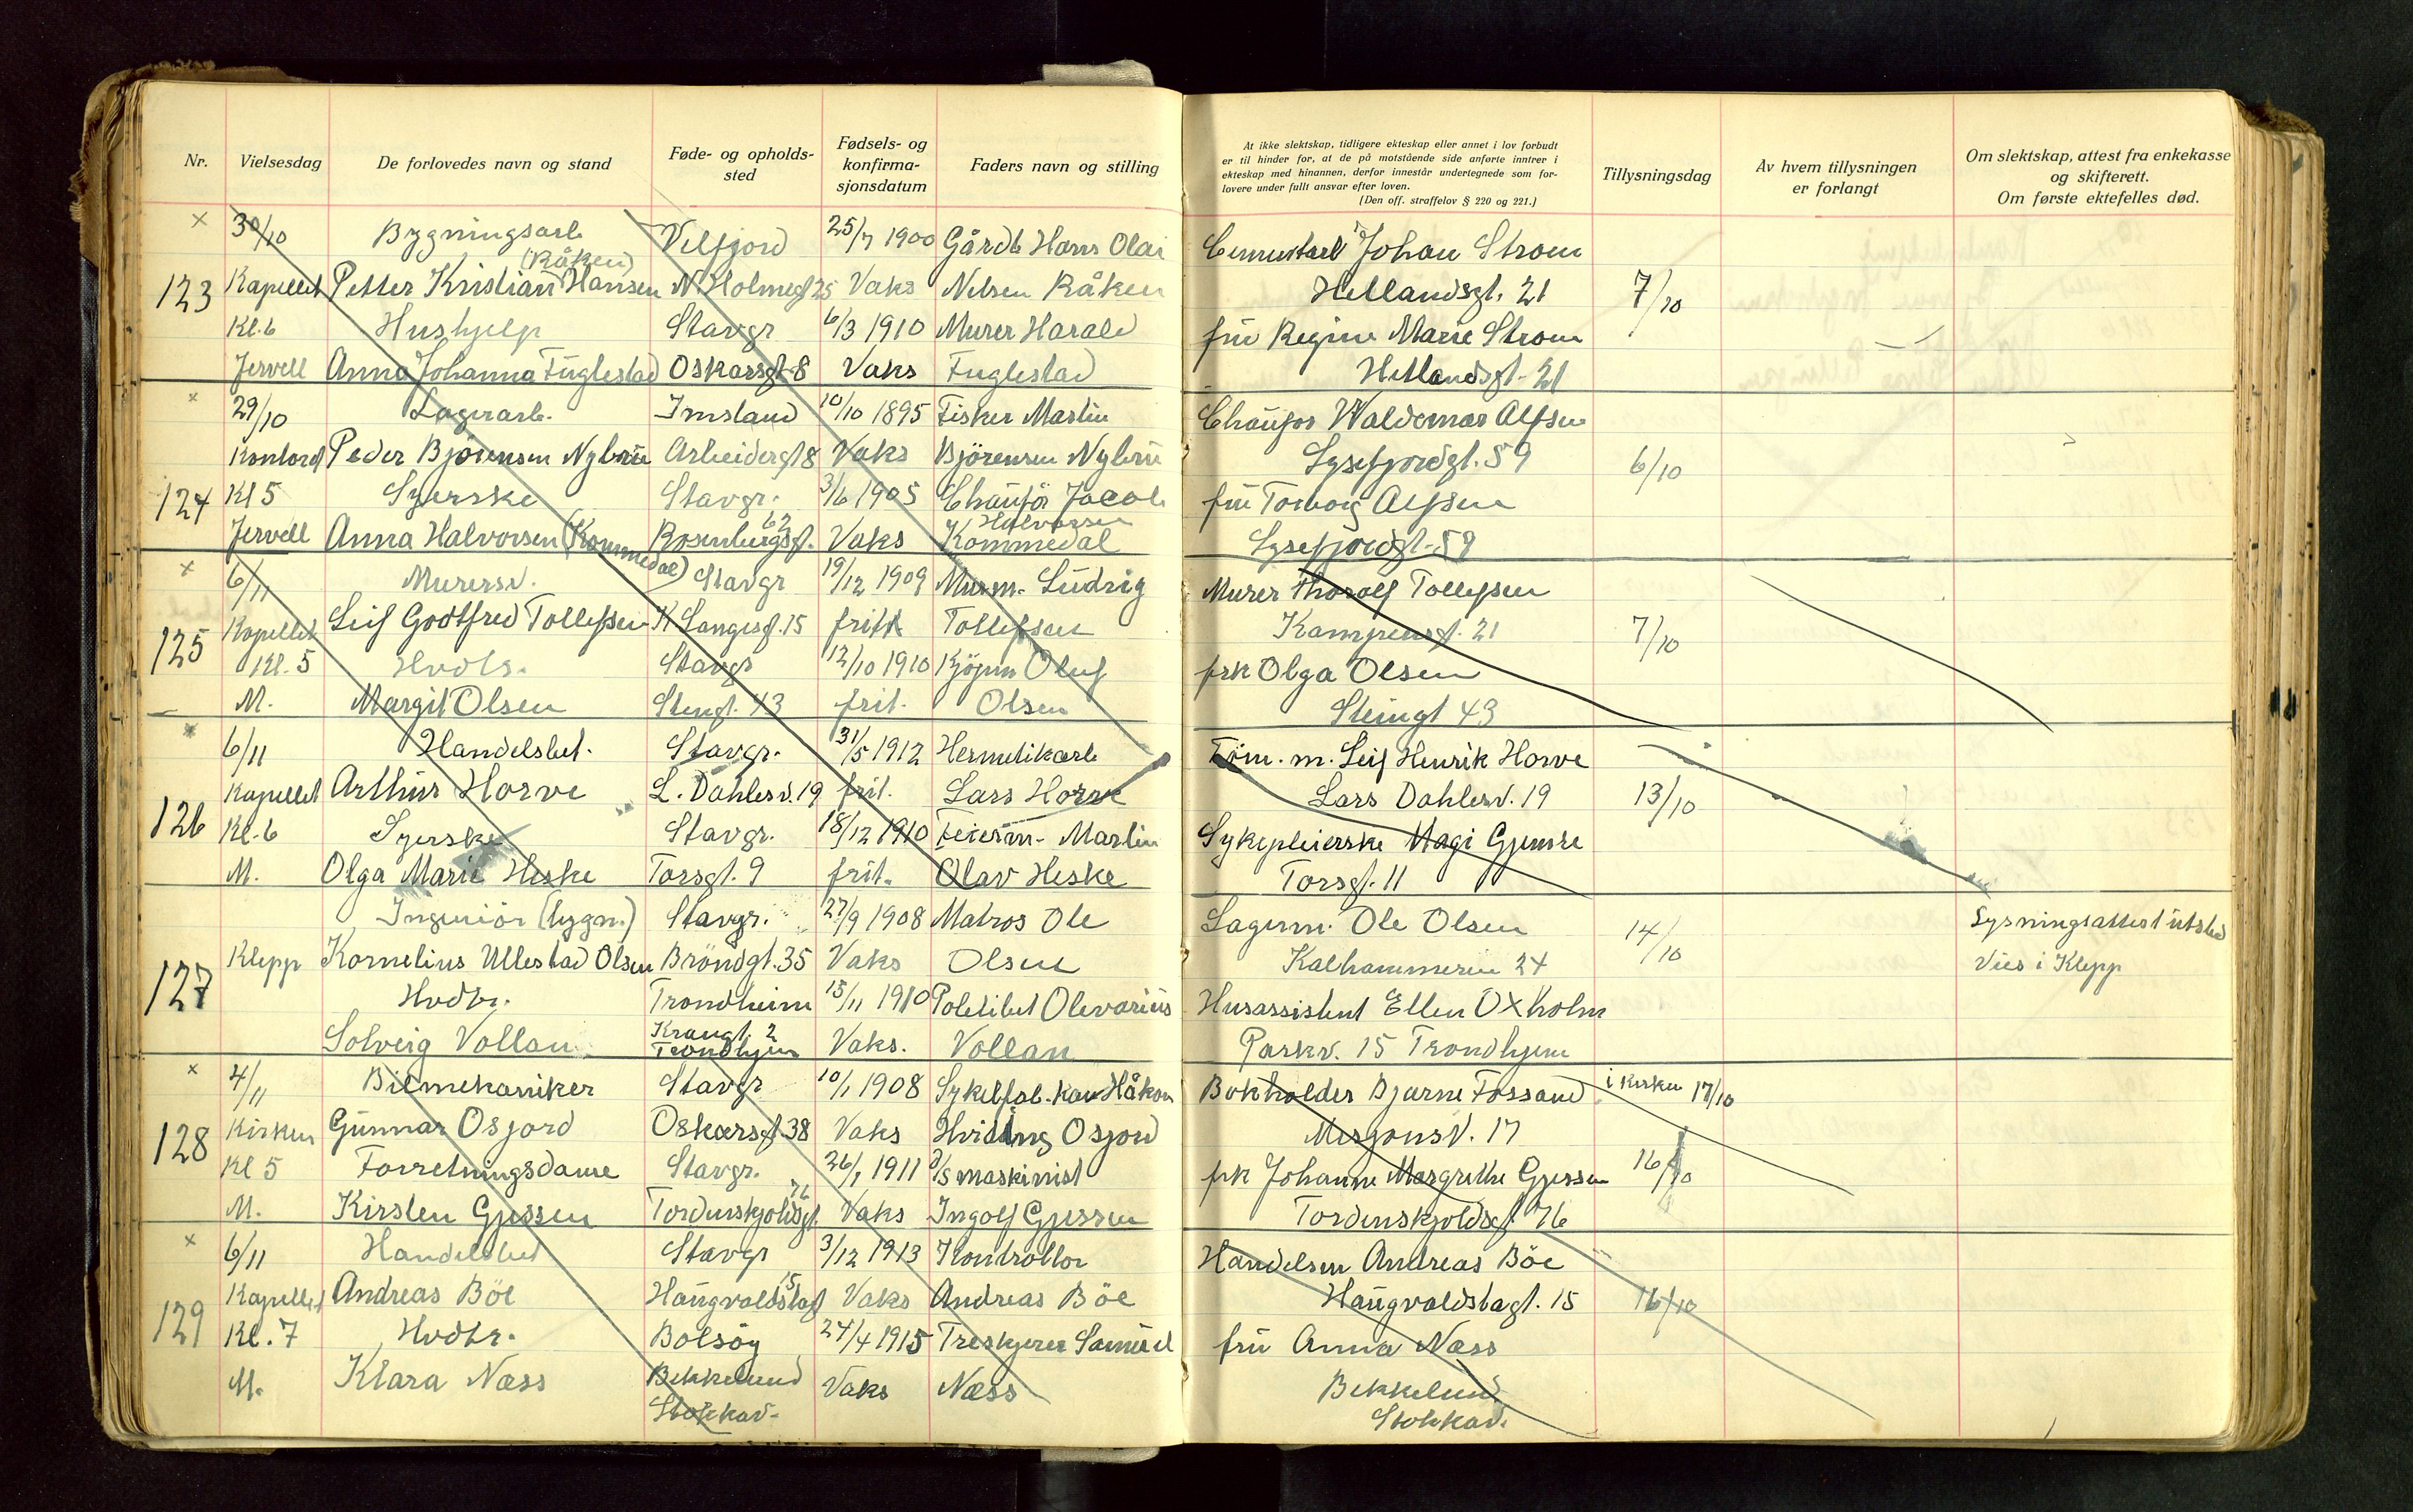 Nr.
Vielsesdag
De forlovedes navn og stand
Føde- og opholds-
sted
Fødsels- og
konfirma-
sjonsdatum
Faders navn og stilling
At ikke slektskap, tidligere ekteskap eller annet i lov forbudt
er til hinder for, at de på motstående side anførte inntrer i
ekteskap med hinannen, derfor innestår undertegnede som for-
lovere under fullt ansvar efter loven.
(Den off. straffelov § 220 og 221.)
Tillysningsdag
Av hvem tillysningen
er forlangt
Om slektskap, attest fra enkekasse
og skifterett.
Om første ektefelles død.
× 30/10 Bygningsarb Velfjord 25/7 1900 Gårdb Hans Olai Cementarb Johan Strom
(Råken)
123 Kapellet Petter Kristian Hansen N Holmegt 25 Vaks Nelsen Råken Hetlandsgt. 21 7/10
Kl. 6 Hushjelp Stavgr 6/3 1910 Murer Harald fru Regine Marie Strom
Jervell Anna Johanna Fuglestad Oskarsgt 8 Vaks Fuglestad Hetlandsgt. 21
× 29/10 Lagerarb. Imsland 10/10 1895 Fisker Martin Chaufør Waldemar Alfsen
Kontoret Peder Bjørensen Nybru Arbeidergt 8 Vaks Bjørensen Nybru Lysefjordgt. 59 6/10
124 Kl 5 Syerske Stavgr. 3/6 1905 Chaufør Jacob fru Torborg Alfsen
62 Halvorsen
Jervell Anna Halvorsen (Kommedal) Rosenbergsgt. Vaks Kommedal Lysefjordgt. 59
× 6/11 Murersv. Stavgr 19/12 1909 Murm. Ludvig Murer Thorolf Tollefsen
125 Kapellet Leif Godtfred Tollefsen K Langesgt. 15 frit Tollefsen Kampensgt. 21 7/10
Kl. 5 Hvdtr. Stavgr 12/10 1910 Kjøpm Oluf frk Olga Olsen
M. Margit Olsen Stengt. 43 frit. Olsen Steingt 43
× 6/11 Handelsbet. Stavgr. 31/5 1912 Hermetikarb Tøm. m. Leif Henrik Horve
126 Kapellet Arthur Horve L. Dahlesv. 19 frit. Lars Horve Lars Dahlesv. 19 13/10
Kl. 6 Syerske Stavgr. 18/12 1910 Feierm. Martin Sykepleierske Magi Gjemre
M. Olga Marie Heske Torsgt. 9 frit. Olav Heske Torsgt. 11
Ingeniør (bygn.) Stavgr. 27/9 1908 Matros Ole Lagerm. Ole Olsen Lysningsattest utsted
127 Klepp Kornelius Ullestad Olsen Brøndgt. 35 Vaks Olsen Kalhammeren 24 14/10 Vies i Klepp
Hvdtr. Trondheim 15/11 1910 Politibet Olevarius Husassistent Ellen Oxholm
Kraugt. 2
Solveig Vollan Trondhjem Vaks. Vollan Parkv. 15 Trondhjem
× 4/11 Bilmekaniker Stavgr 10/1 1908 Sykelfab. Håkon Bokholder Bjarne Fossand i kirken 17/10
128 Kirken Gunnar Osjord Oskarsgt 38 Vaks Hviding Osjord Misjonsv. 17
Kl 5 Forretningsdame Stavgr. 26/1 1911 D/S maskinist frk Johanne Margrethe Gjessen 16/10
76
M. Kirsten Gjessen Tordenskjoldsgt. Vaks Ingolf Gjessen Tordenskjoldsgt 76
× 6/11 Handelsbet Stavgr 3/12 1913 Kontrollør Handelsm Andreas Böe
15
129 Kapellet Andreas Böe Haugvaldstagt Vaks Andreas Böe Haugvaldstagt. 15 16/10
Kl. 7 Hvdtr. Bolsøy 24/4 1915 Treskjerer Samuel fru Anna Næss
M. Klara Næss Bekkelund Vaks Næss Bekkelund
Stokkav. Stokkav.